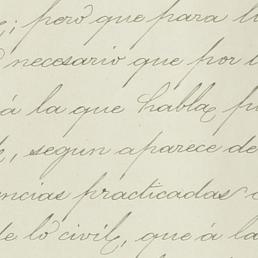 ; pero que para l
necesario que por l
á la que habla p
, segun aparece de
ncias practicadas
de lo civil, que á la